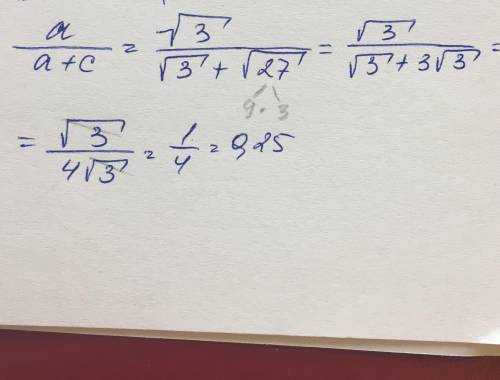 a/(a+c) = √3/(√3 + √27) = √3/(√3 + 3√3) =
9·3
= √3/(4√3) = 1/4 = 0,25